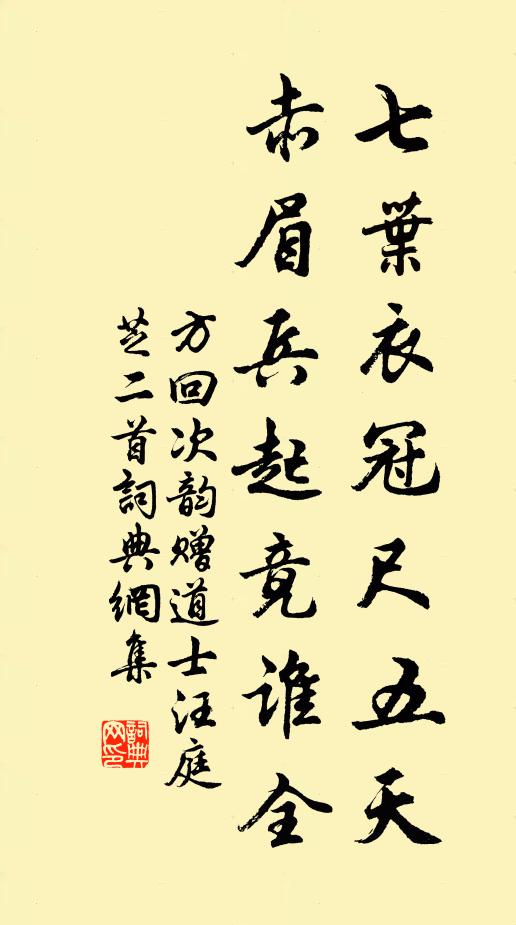 七葉衣冠尺五天
赤眉兵起竟誰全
方回次韵赠道士汪庭
芝二首詞典網集
詞典
网印